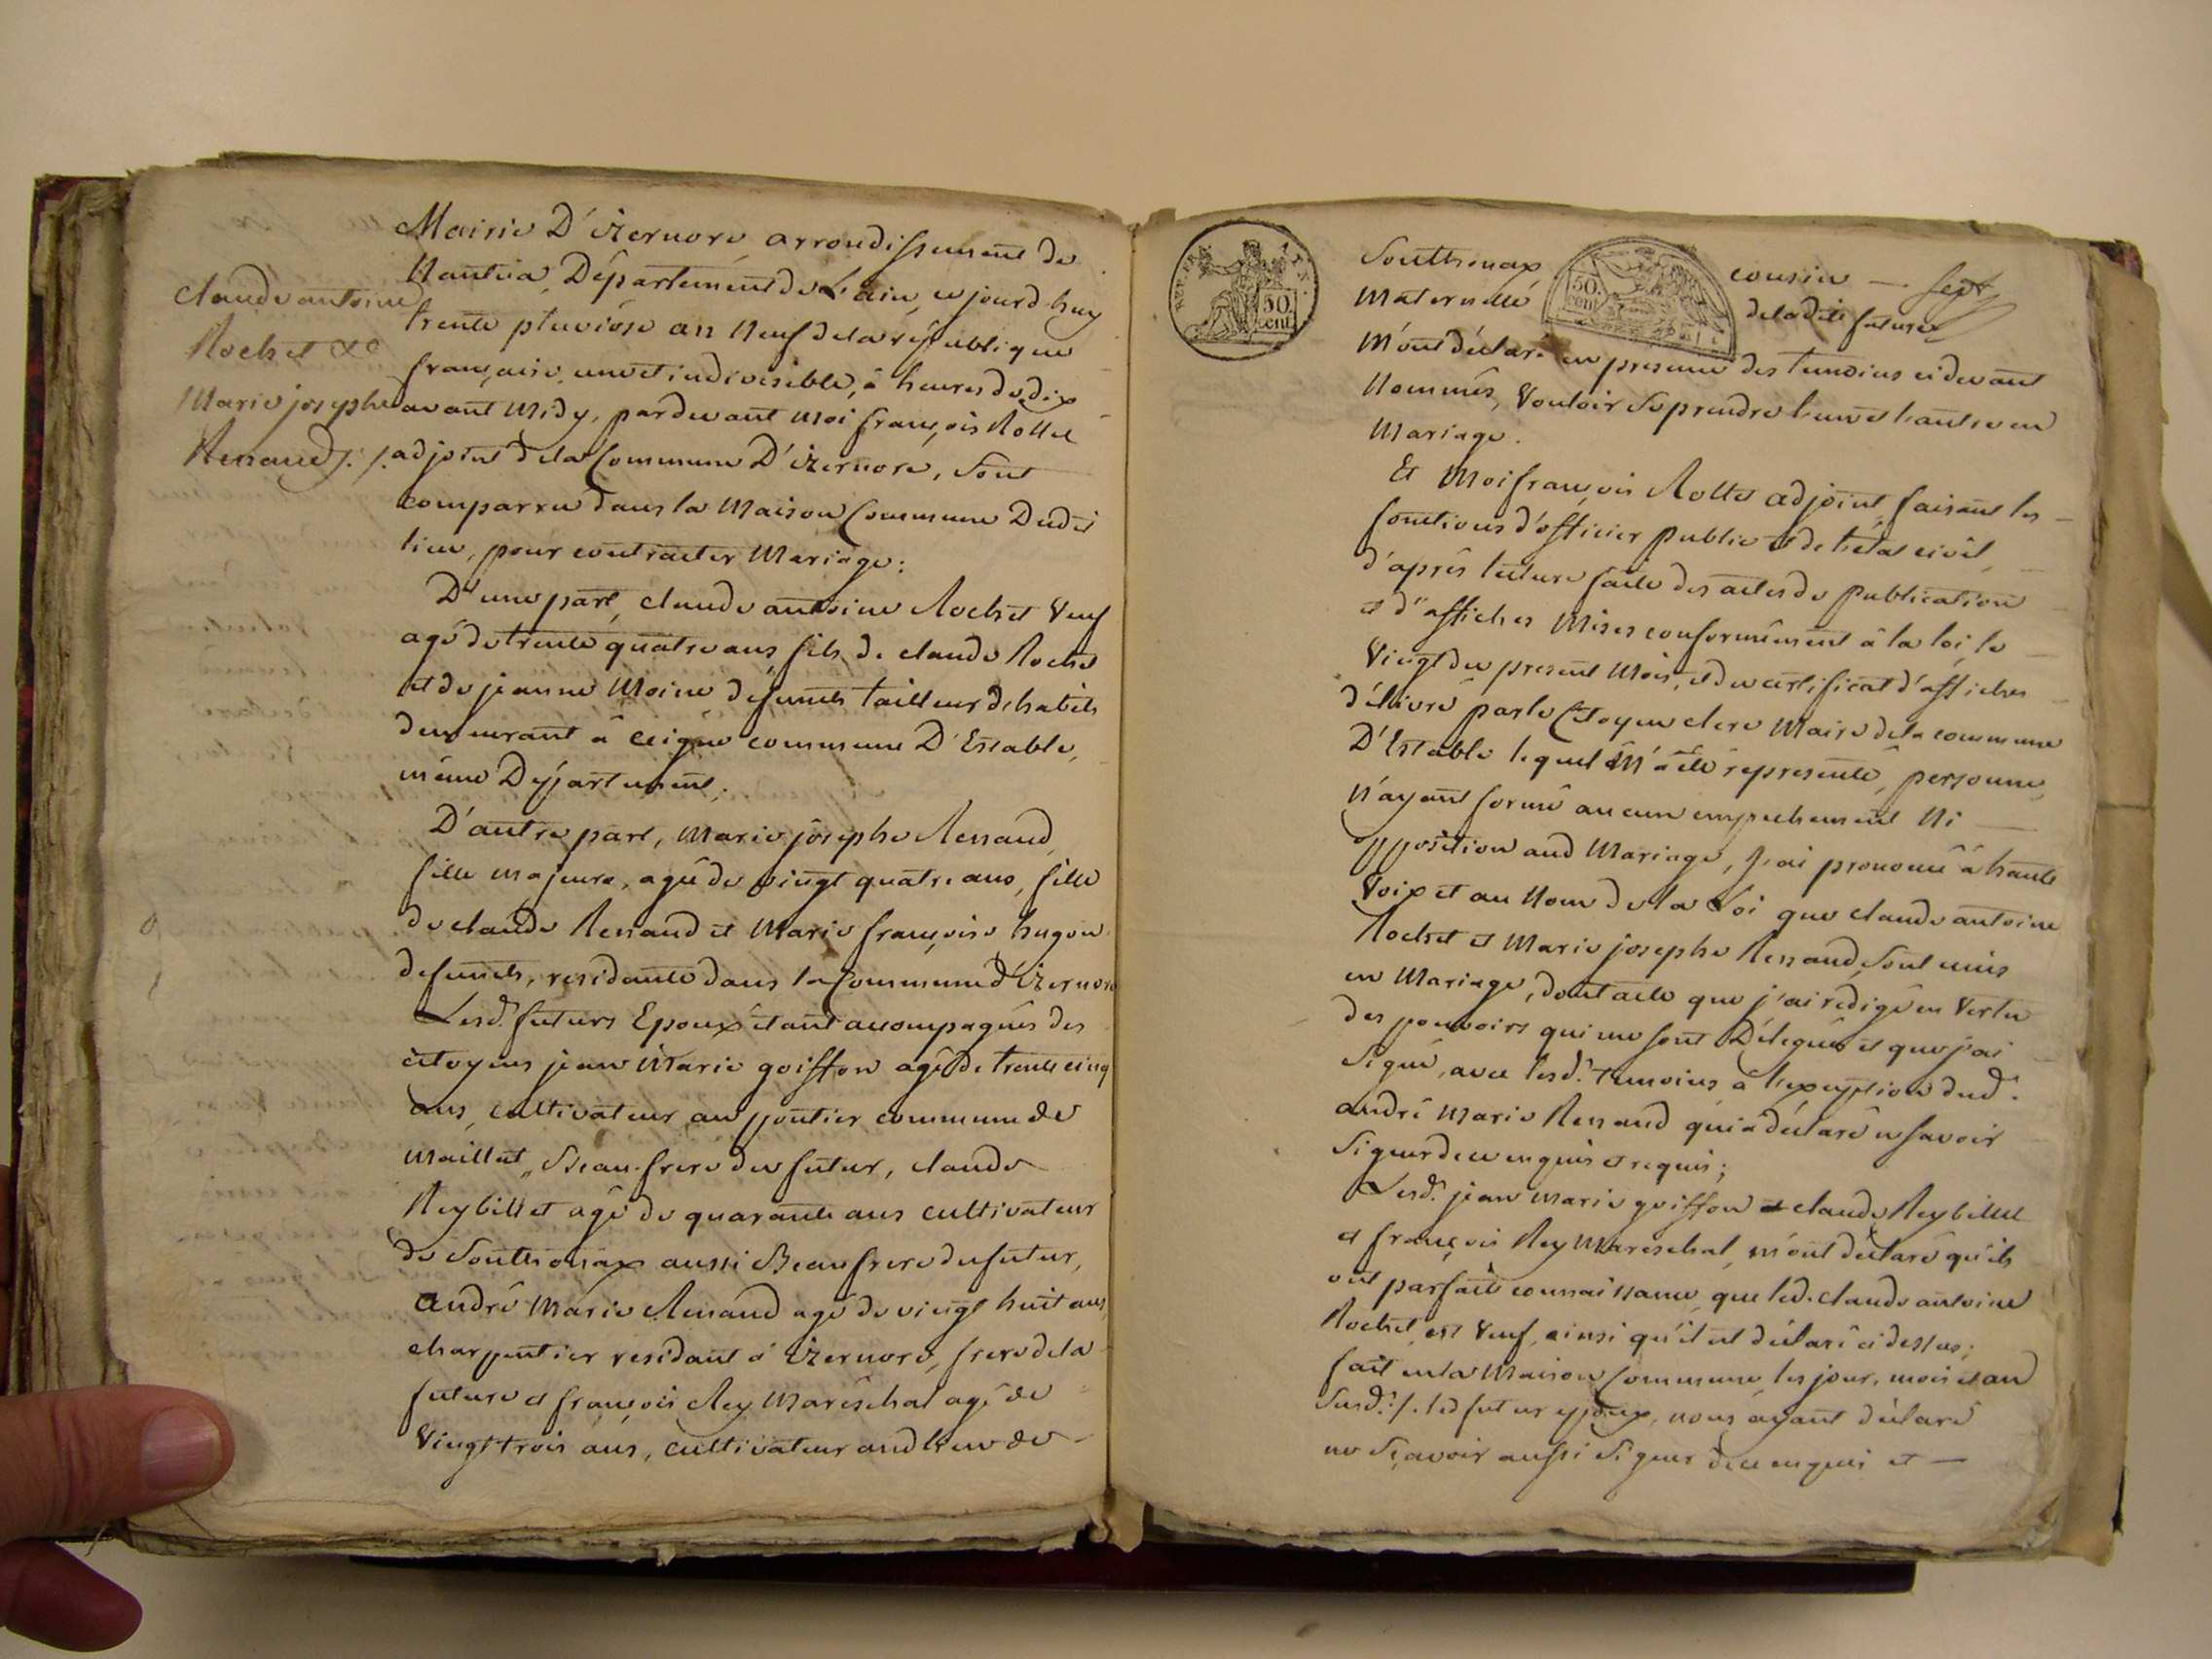 Mairie D'izernore arrondissement de
Nantua, Département de L'ain, ce jourd'huy
trente pluviôse an Neuf de la république
française, une et indivisible, à heures de dix
avant Midy, pardevant Moi françois Rollet
adjoint de la Commune D'izernore, Sont
comparru dans la Maison Commune Dudit
lieu, pour contracter Mariage:
claude antoine
Rochet &c
Marie josephe
Renaud ./.
D'une part, claude antoine Rochet Veuf
agé de trente quatre ans, fils de claude Rochet
et de jeanne Moine defunts tailleur d'habits
demeurant à ceigne commune D'Estable,
même Département;
D'autre part, Marie josephe Renaud,
fille majeure, agée de vingt quatre ans, fille
de claude Renaud et Marie françoise hugon
defunts, residante dans la Commune d'izernore
Lesd. futurs Epoux étant accompagnés des
citoyens jean Marie goiffon agé de trente cinq
ans, cultivateur au pontier commune de
Maillat, Beau-frere du futur, claude
Reybillet agé de quarante ans cultivateur
de Southonax aussi Beaufrere du futur,
André Marie Renaud agé de vingt huit ans
charpentier residant à izernore, frere de la
future et françois Rey Mareschal agé de
Vingt trois ans, cultivateur aud lieu de
REP. FRA.
50
cent
Southonax cousin — sept
50.
cent
Maternelle de ladite future
M'ont déclaré en presence des temoins cidevant
Nommés, Vouloir Se prendre l'un et l'autre en
Mariage.
Et Moi françois Rollet adjoint faisant les
fonctions d'officier public et de l'état civil,
d'après lecture faite des actes de publication
et d'affiches Mises conformément à la loi, le
Vingt du present Mois, et du certificat d'affiches
délivré par le Citoyen clerc Maire de la commune
D'Estable lequel M'a été representé, personne
N'ayant formé aucun empechement Ni
opposition aud Mariage, j'ai prononcé à haute
Voix et au Nom de la Loi que claude antoine
Rochet et Marie josephe Renaud, Sont unis
en Mariage, dont acte que j'ai redigé en Vertu
des pouvoirs qui me sont Délegués et que j'ai
Signé, avec lesd. temoins à l'exception dud.
andré Marie Renaud qui a déclaré ne savoir
Signer de ce enquis et requis;
Lesd. jean marie goiffon et claude Reybillet
et françois Rey Mareschal, m'ont déclaré qu'ils
ont parfaite connaissance que led. claude antoine
Rochet, est Veuf, ainsi qu'il est déclaré ci dessus;
fait en la Maison Commune les jour, mois et an
Susd. ./. led futur epoux, nous ayant déclaré
ne Sçavoir aussi Signer de ce enquis et —